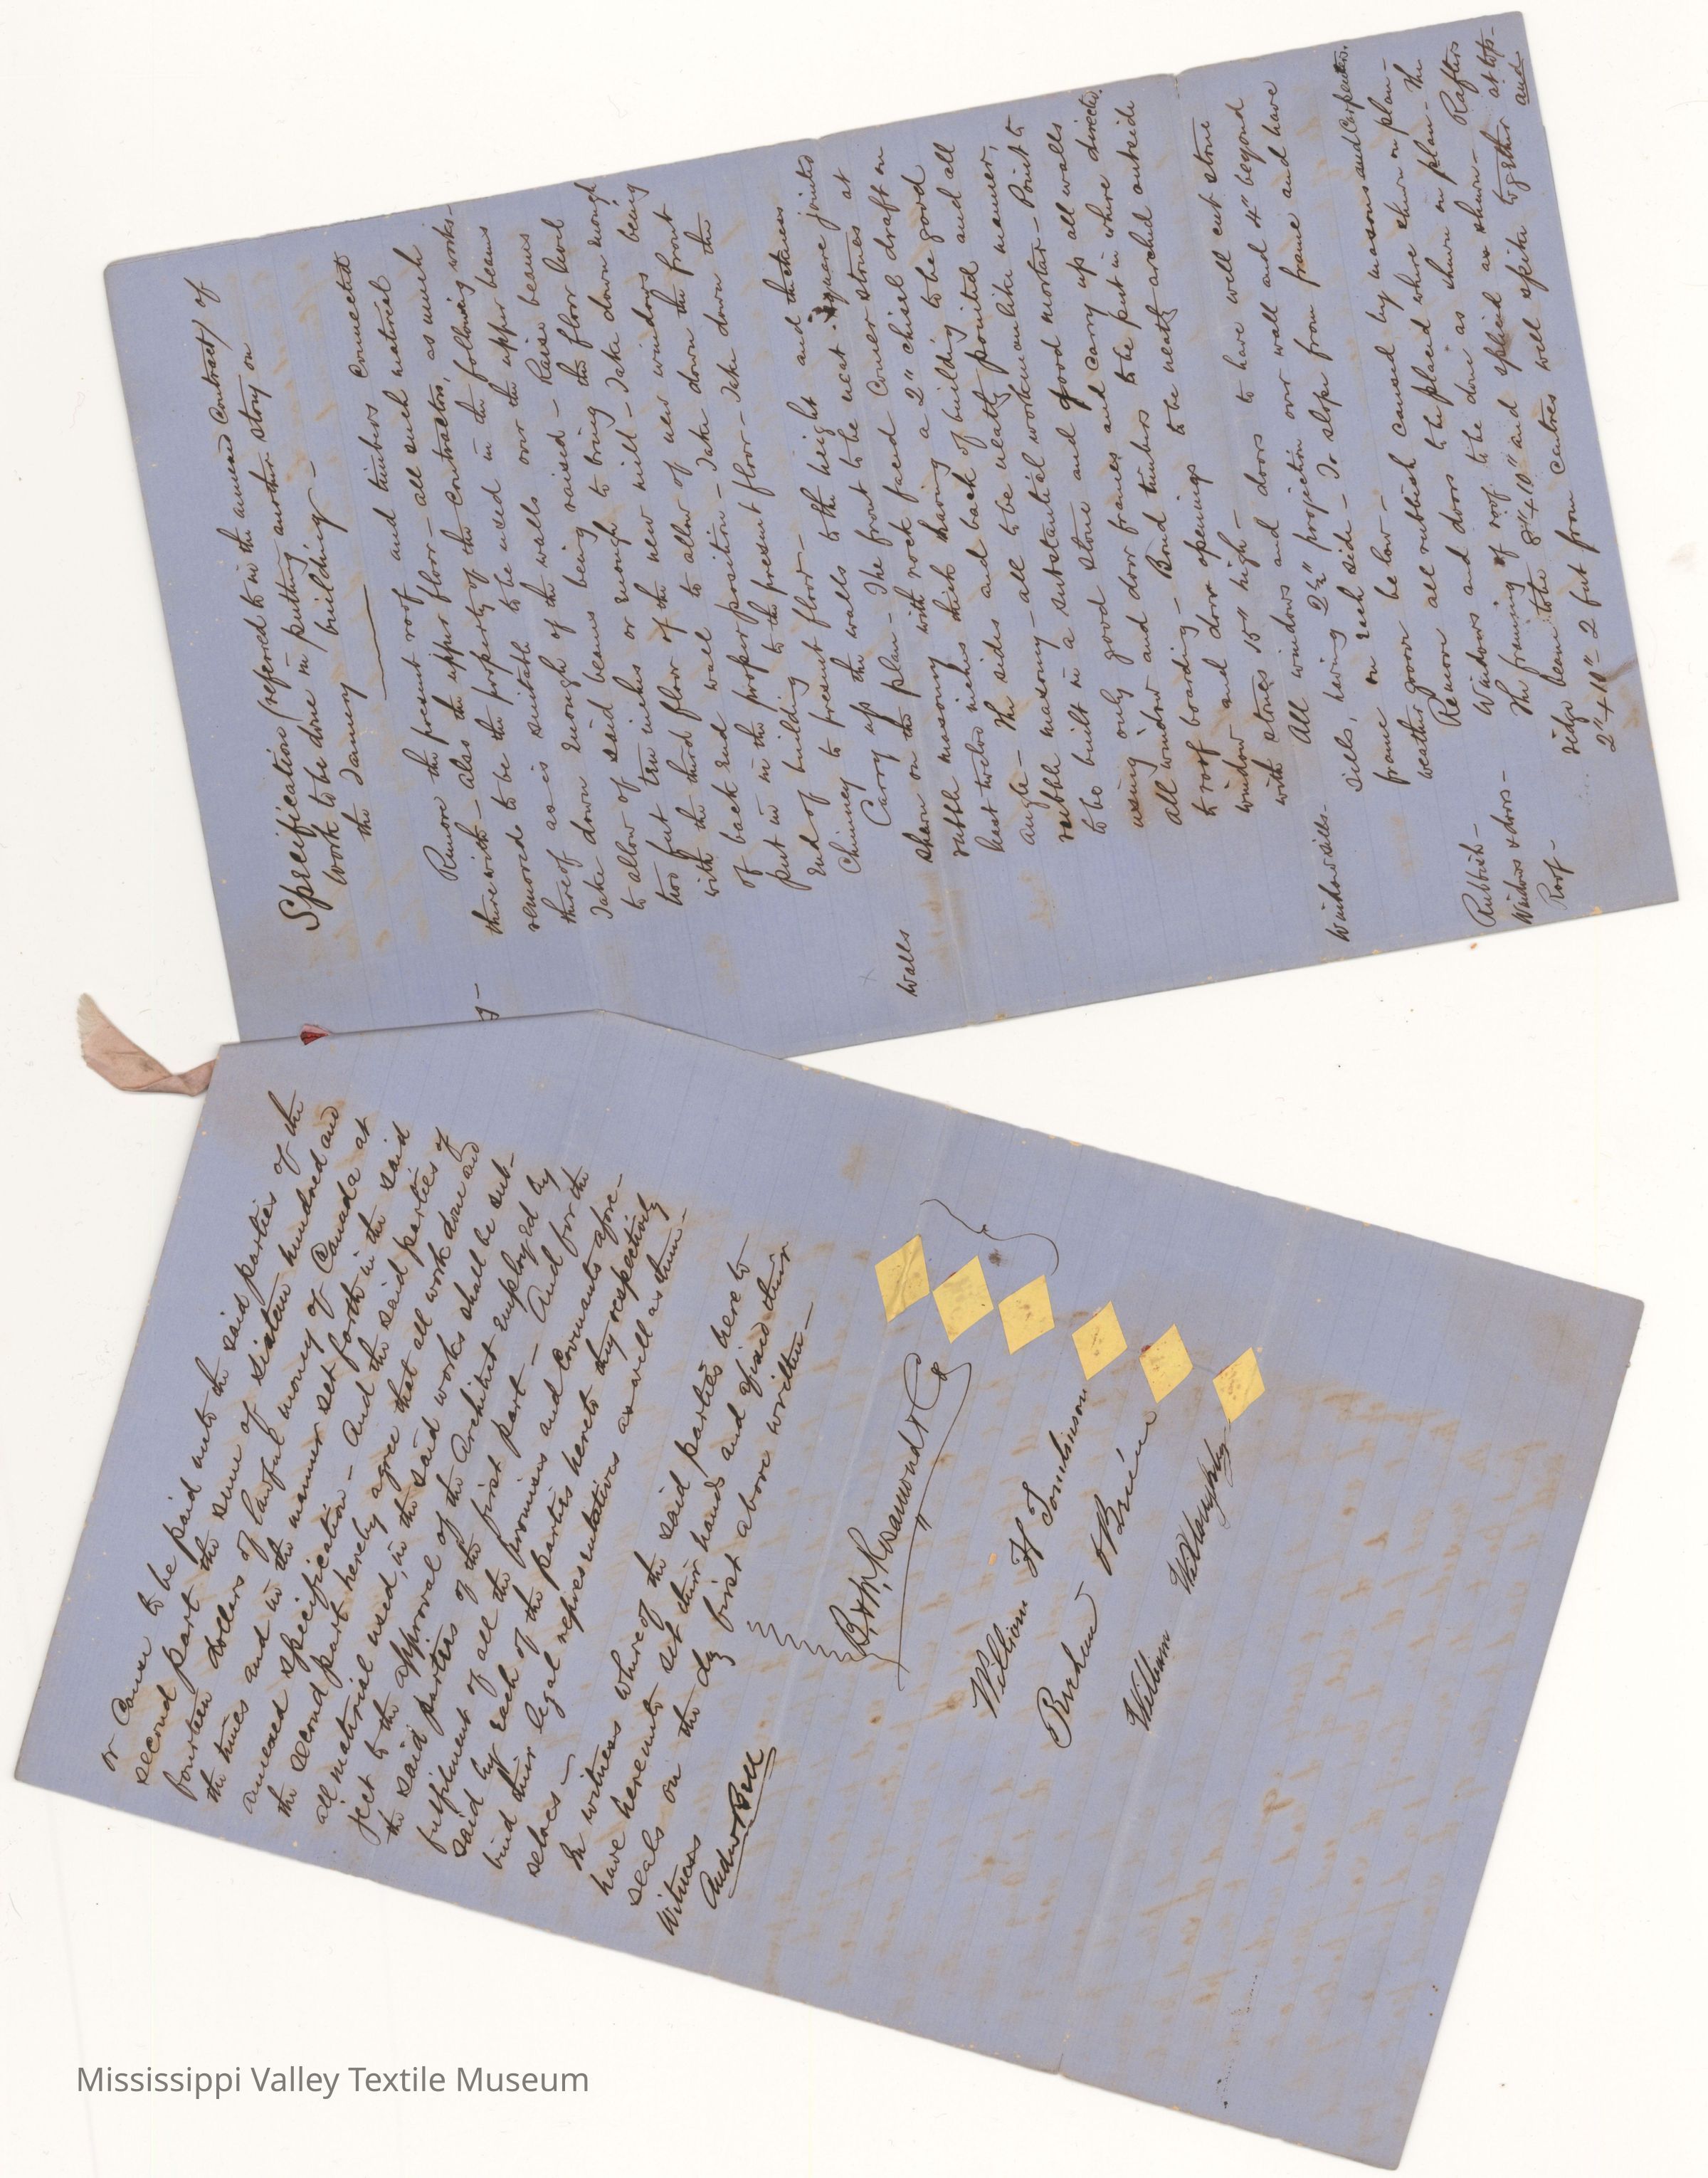 or cause to be paid unto the said parties of the
second part the sum of sixteen hundred and
fourteen dollars of lawful money of Canada at
the times and in the manner set forth in the said
annexed specification - And the said parties of
the second part hereby agree that all work done and
all material used, in the said works shall be sub-
ject to the approval of the Architect employed by
the said parties of the first part - And for the
fulfilment of all the promises and Covenants afore-
said by each of the parties hereto they respectively
bind their legal representatives as well as them-
selves -
In witness whereof the said parties here to
have hereunto set their hands and affixed their
seals on the day first above written -
Witness
Andw Bell
B & W Rosamond & Co
William H Tomlinson
Brehem OBrien
William Willoughby
Specification (referred to in the annexed Contract) of
Work to be done in putting another story on
the Tannery building -
Remove the present roof and timbers connected
therewith - also the upper floor - all such material
removed to be the property of the contractors, as much
thereof as is suitable to be used in the following works -
Take down enough of the walls over the upper beams
to allow of said beams being raised - Raise beams
two feet two inches or enough to bring the floor level
with the third floor of the new mill - Take down enough
of back end wall to allow of new windows being
put in in the proper position - Take down the front
end of building to the present floor - Take down the
Chimney to present floor -
Walls
Carry up the walls to the height and thickness
shewn on the plan - The front to be neat square jointed
rubble masonry with rock faced Corner stones at
least twelve inches thick having a 2" chisel draft on
angle - The sides and back of building to be good
rubble masonry - all to be neatly pointed and all
to be built in a substantial workmanlike manner,
using only good stone and good mortar - Point to
all window and door frames and carry up all walls
to roof boarding - Bond timbers to be put in where directed.
window and door openings to be neatly arched outside
with stones 15" high -
Window sills -
All windows and doors to have well cut stone
sills, having 2½" projection over wall and 4" beyond
frame on each side - To slope from frame and have
weather groove below -
Rubbish -
Remove all rubbish caused by masons and Carpenters.
Windows & doors -
Windows and doors to be placed where shewn on plan -
Roof -
The framing of roof to be done as shewn on plan - The
ridge beam to be 8" x 10" and spliced as shewn - Rafters
2" x 10" - 2 feet from centres well spiked together at top -
and